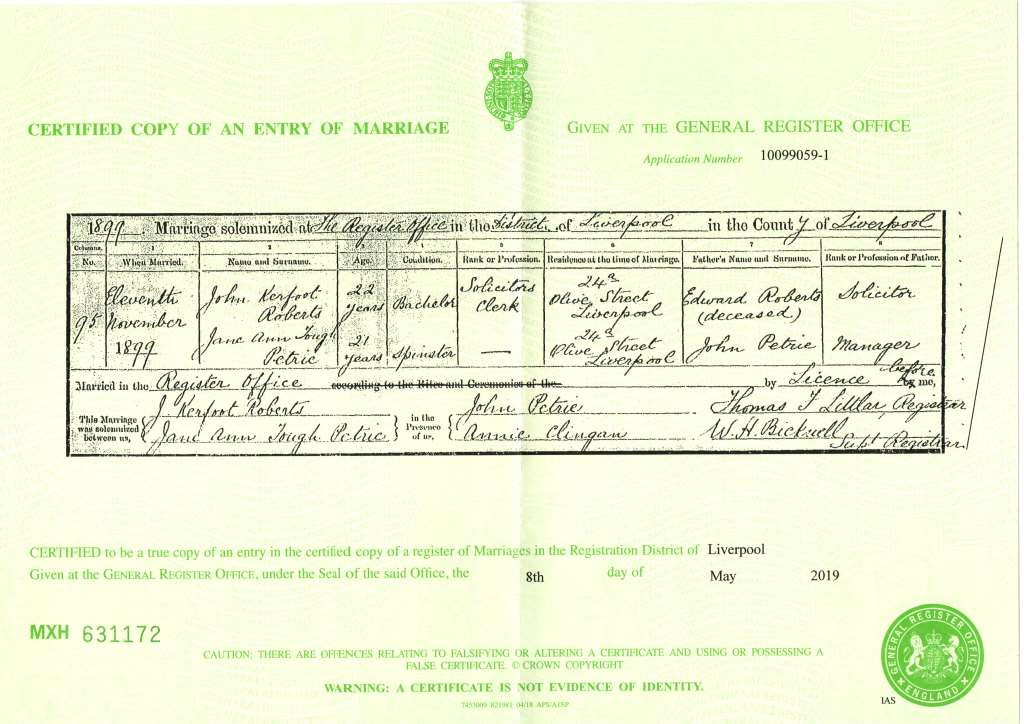 CERTIFIED COPY OF AN ENTRY OF MARRIAGE
GIVEN AT THE GENERAL REGISTER OFFICE
Application Number 10099059-1
1899. Marriage solemnized at The Register Office in the District of Liverpool in the County of Liverpool
Columns. 1 2 3 4 5 6 7 8
No. When Married. Name and Surname. Age. Condition. Rank or Profession. Residence at the time of Marriage. Father's Name and Surname. Rank or Profession of Father.
95 Eleventh November 1899
John Kerfoot Roberts 22 years Bachelor Solicitors Clerk 24a Olive Street Liverpool Edward Roberts (deceased) Solicitor
Jane Ann Tough Petrie 21 years Spinster — 24a Olive Street Liverpool John Petrie Manager
Married in the Register Office according to the Rites and Ceremonies of the by Licence before by me,
This Marriage was solemnized between us,
J. Kerfoot Roberts
Jane Ann Tough Petrie
in the Presence of us,
John Petrie
Annie Clingan
Thomas T Registrar
W. H. Bicknell Supt Registrar
CERTIFIED to be a true copy of an entry in the certified copy of a register of Marriages in the Registration District of Liverpool
Given at the GENERAL REGISTER OFFICE, under the Seal of the said Office, the 8th day of May 2019
MXH 631172
CAUTION: THERE ARE OFFENCES RELATING TO FALSIFYING OR ALTERING A CERTIFICATE AND USING OR POSSESSING A
FALSE CERTIFICATE. © CROWN COPYRIGHT
WARNING: A CERTIFICATE IS NOT EVIDENCE OF IDENTITY.
GENERAL REGISTER OFFICE
ENGLAND
IAS